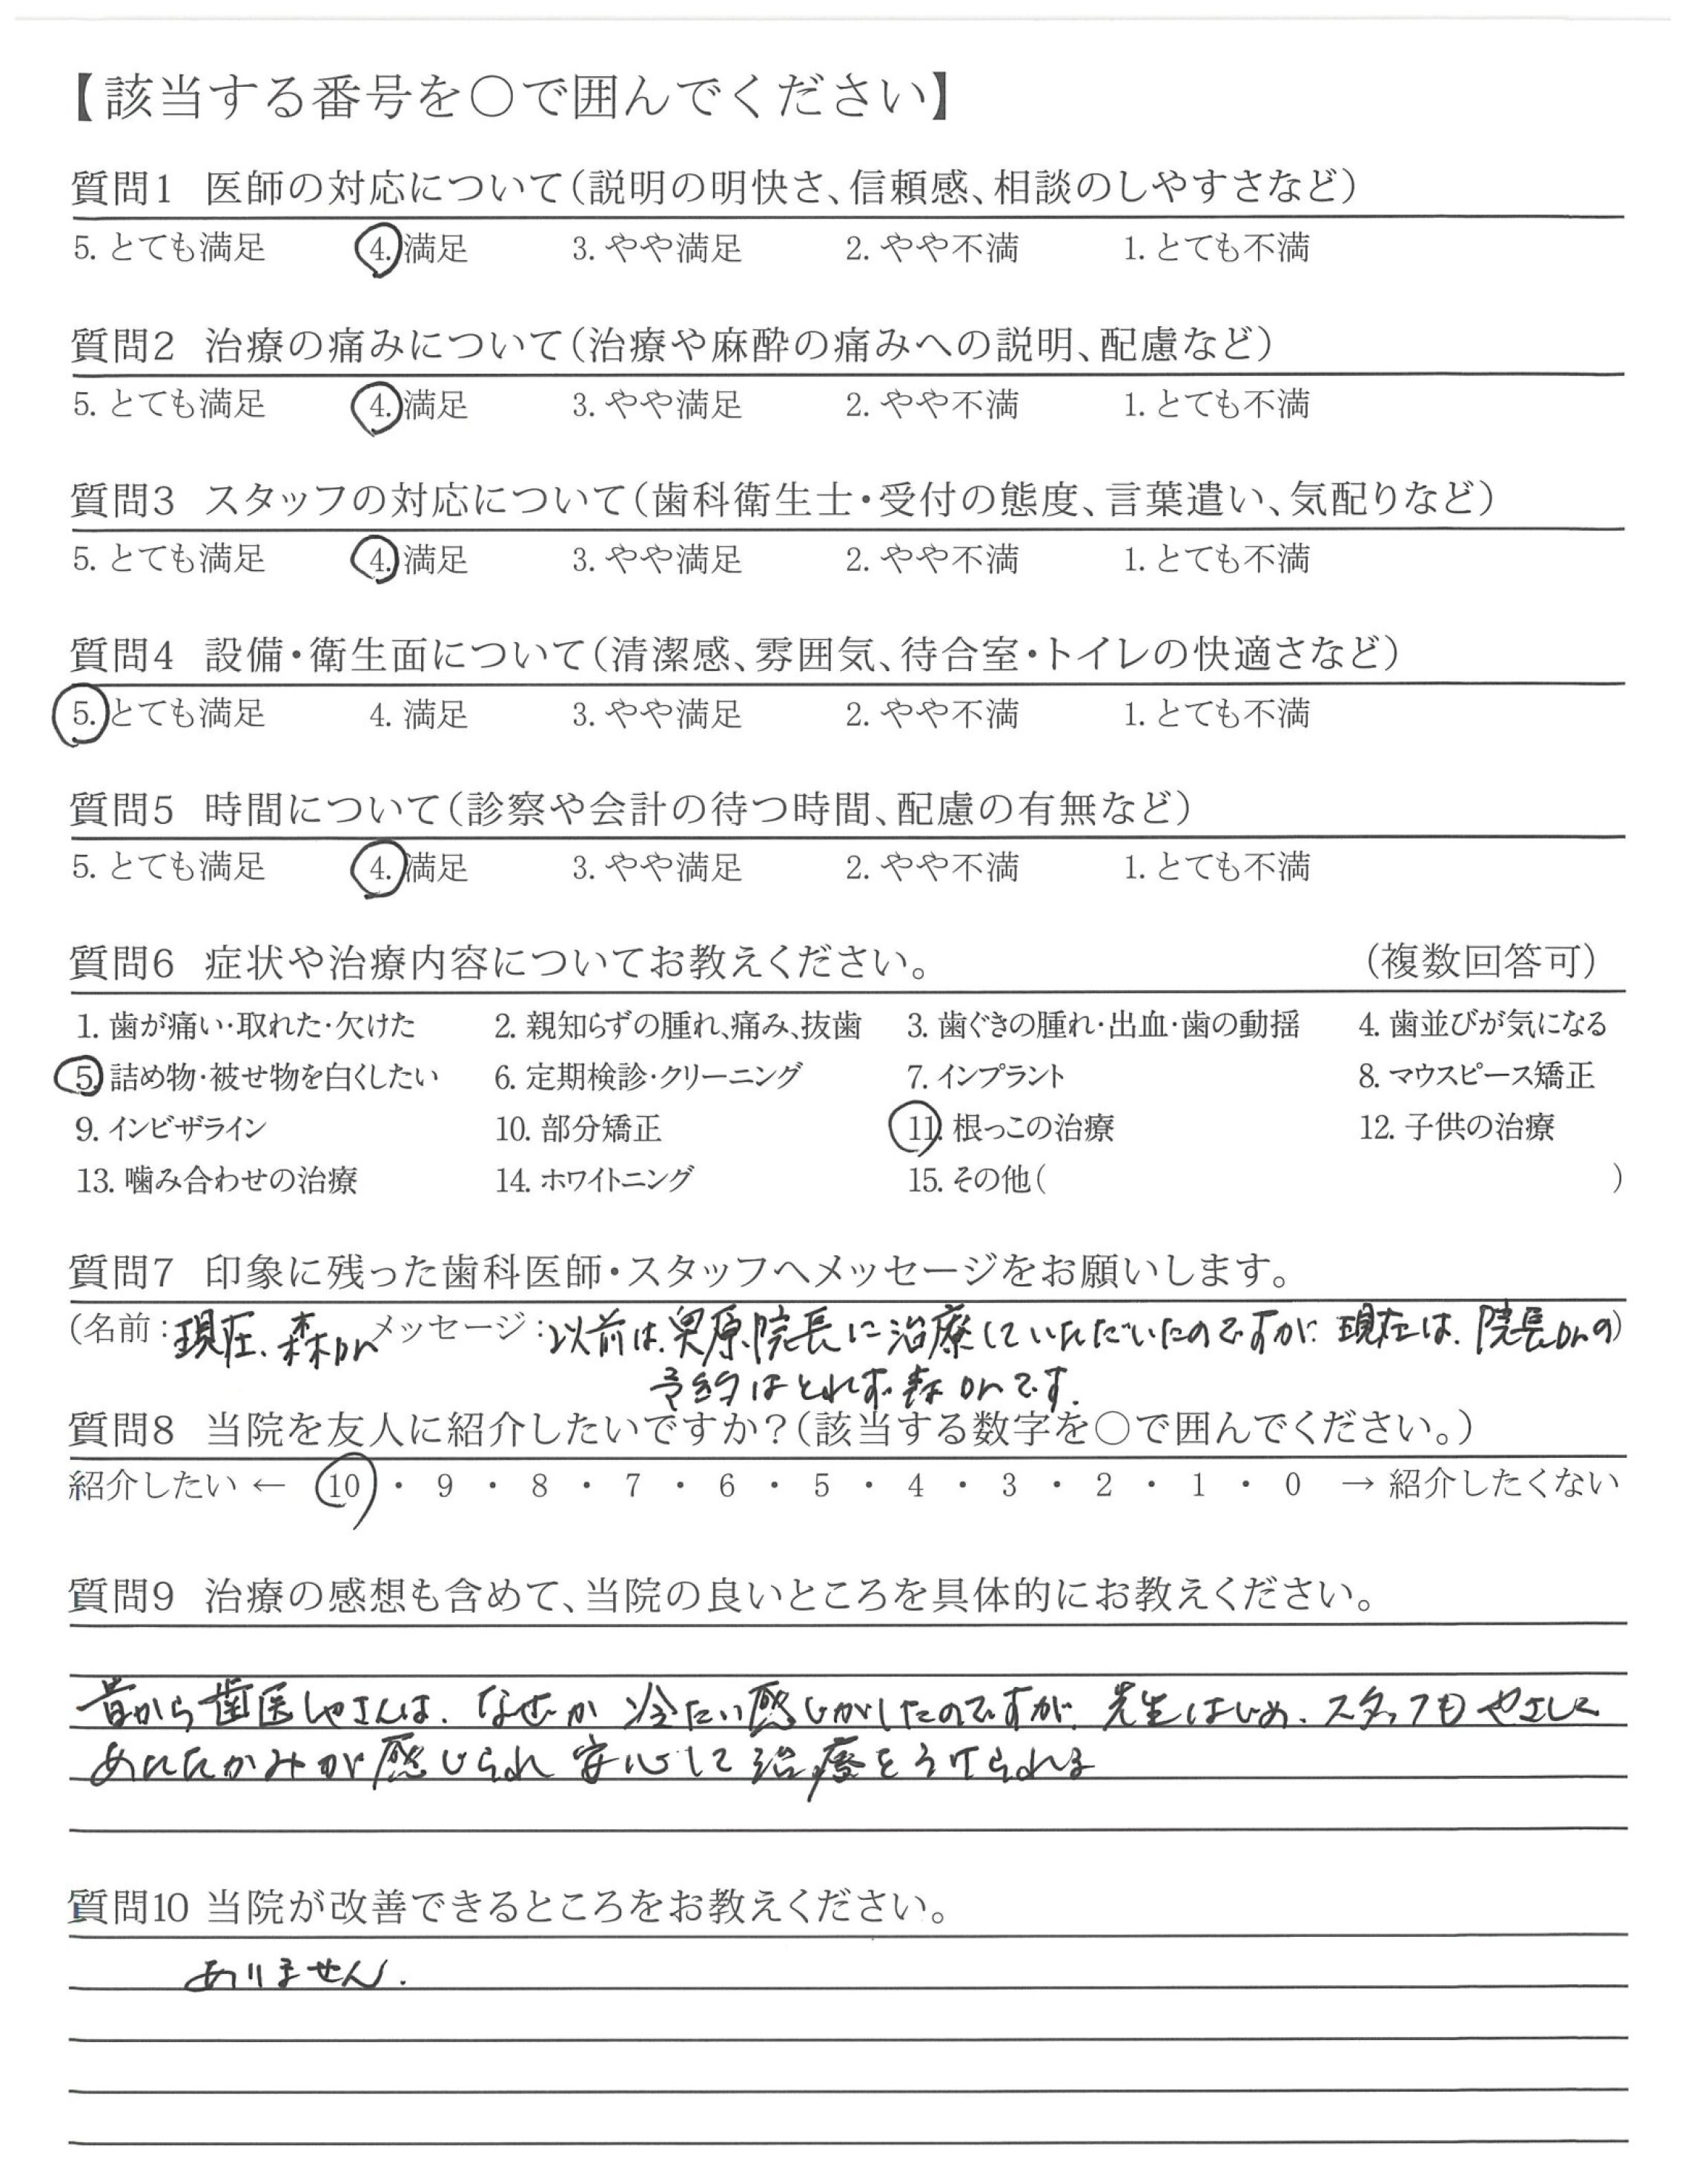 【該当する番号を○で囲んでください】
質問1 医師の対応について(説明の明快さ、信頼感、相談のしやすさなど)
5. とても満足 4. 満足 3. やや満足 2. やや不満 1. とても不満
質問2 治療の痛みについて(治療や麻酔の痛みへの説明、配慮など)
5. とても満足 4. 満足 3. やや満足 2. やや不満 1. とても不満
質問3 スタッフの対応について(歯科衛生士・受付の態度、言葉遣い、気配りなど)
5. とても満足 4. 満足 3. やや満足 2. やや不満 1. とても不満
質問4 設備・衛生面について(清潔感、雰囲気、待合室・トイレの快適さなど)
5. とても満足 4. 満足 3. やや満足 2. やや不満 1. とても不満
質問5 時間について(診察や会計の待つ時間、配慮の有無など)
5. とても満足 4. 満足 3. やや満足 2. やや不満 1. とても不満
質問6 症状や治療内容についてお教えください。 (複数回答可)
1. 歯が痛い・取れた・欠けた 2. 親知らずの腫れ、痛み、抜歯 3. 歯ぐきの腫れ・出血・歯の動揺 4. 歯並びが気になる
5. 詰め物・被せ物を白くしたい 6. 定期検診・クリーニング 7. インプラント 8. マウスピース矯正
9. インビザライン 10. 部分矯正 11. 根っこの治療 12. 子供の治療
13. 噛み合わせの治療 14. ホワイトニング 15. その他( )
質問7 印象に残った歯科医師・スタッフへメッセージをお願いします。
(名前:現在、森Dr メッセージ:以前は、奥原院長に治療していただいたのですが、現在は、院長Drの)
予約はとれず、森Drです.
質問8 当院を友人に紹介したいですか?(該当する数字を○で囲んでください。)
紹介したい ← 10 ・ 9 ・ 8 ・ 7 ・ 6 ・ 5 ・ 4 ・ 3 ・ 2 ・ 1 ・ 0 → 紹介したくない
質問9 治療の感想も含めて、当院の良いところを具体的にお教えください。
昔から歯医しゃさんは、なぜか冷たい感じがしたのですが、先生はじめ、スタッフもやさしく
あたたかみが感じられ安心して治療をうけられる
質問10 当院が改善できるところをお教えください。
ありません.